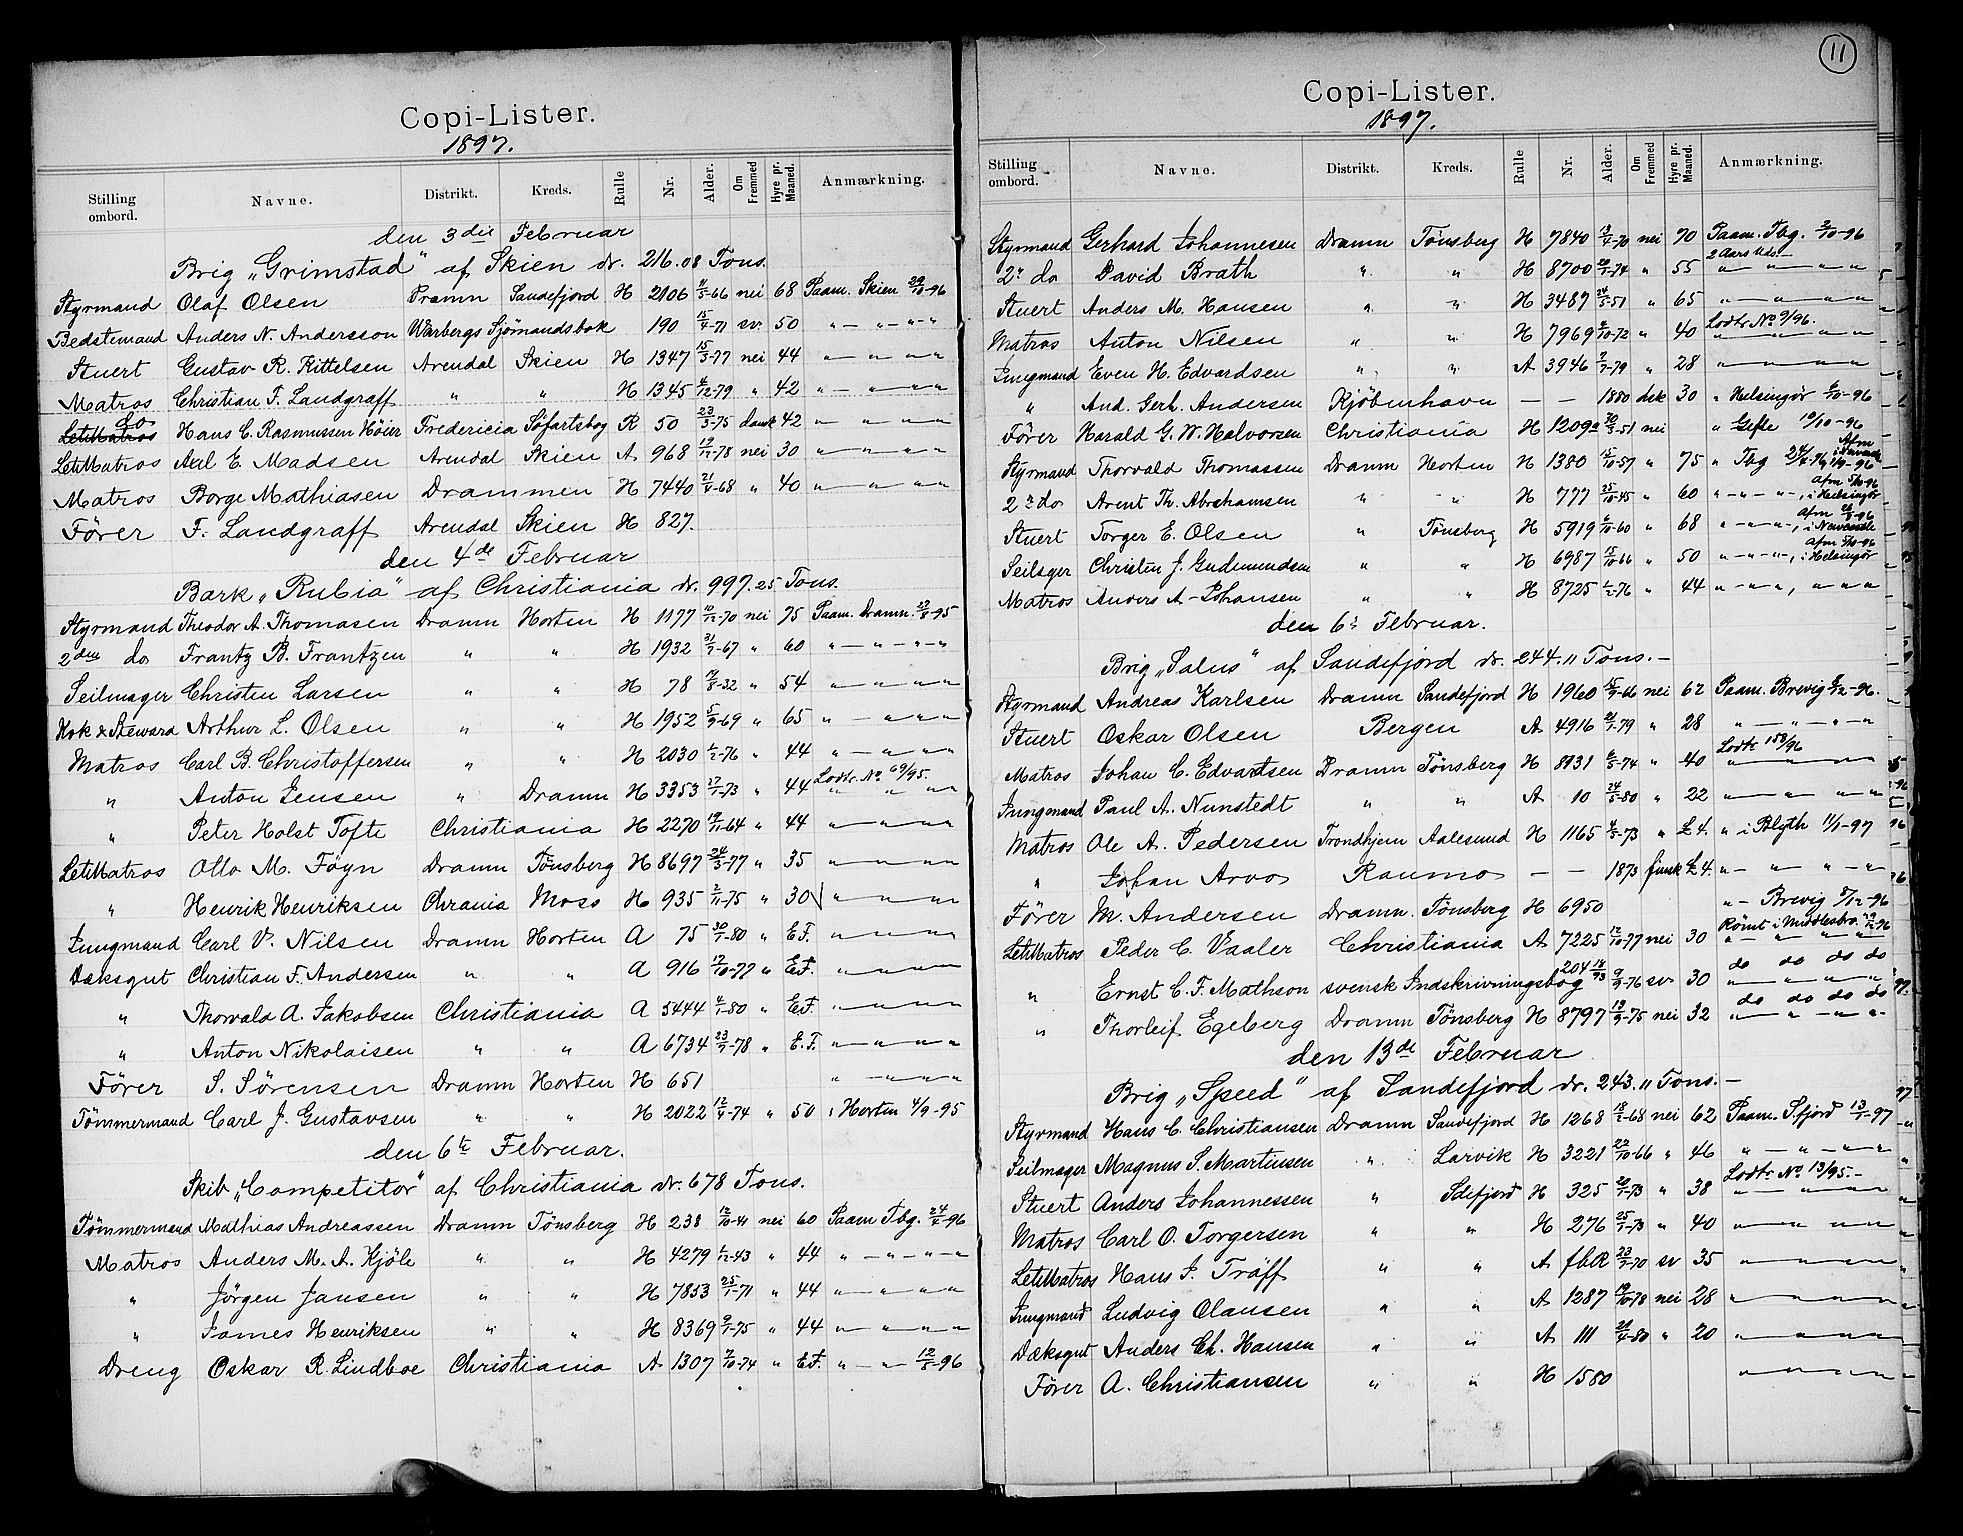 Copi-Lister.
1897.
Stilling ombord. Navne. Distrikt. Kreds. Rulle Nr. Alder. Om Fremmed Hyre pr. Maaned. Anmærkning.
den 3die Februar
Brig „Grimstad" af Skien dr. 216.08 Tons.
Styrmand Olaf Olsen Dramn Sandefjord H 2106 11/5-66 nei 68 Paam. Skien 29/10-96
Bedstemand Anders N. Andersson Warbergs Sjömandsbok 190 15/4-71 sv. 50 " — " — " — "
Stuert Gustav R. Kittelsen Arendal Skien H 1347 15/3-77 nei 44 " — " " "
Matros Christian F. Landgraff " " H 1345 4/12-79 " 42 " — " " "
do Hans C. Rasmussen Höier Fredericia Söfartsbog R 50 23/3-75 dansk 42 " — " " "
LetMatros Axl E. Madsen Arendal Skien A 968 19/12-78 nei 30 " — " " "
Matros Borge Mathiasen Drammen H 7440 21/4-68 " 40 " — " " "
Förer F. Landgraff Arendal Skien H 827.
den 4de Februar
Bark „Rubia" af Christiania dr. 997.25 Tons.
Styrmand Theodor A. Thomasen Dramn Horten H 1177 10/12-70 nei 75 Paam. Dramn. 13/8-95
2den do Frantz B. Frantzen " " H 1932 31/7-67 " 60 " — " — " — "
Seilmager Christen Larsen " " H 78 17/8-32 " 54 " — " " "
Kok & Steward Arthur L. Olsen " " H 1952 5/9-69 " 65 " — " " "
Matros Carl B. Christoffersen " " H 2030 6/2-76 " 44 " — " " "
" Anton Jensen " Dramn H 3353 27/1-73 " 44 Lodtr. No. 69/95. " " "
" Peter Holst Tofte Christiania H 2270 19/11-64 " 44 " — " " "
LetMatros Otto M. Föyn Dramn Tönsberg H 8697 24/3-77 " 35 " — " " "
" Henrik Henriksen Chrania Moss H 935 2/11-75 " 30 " — " " "
Jungmand Carl V. Nilsen Dramn Horten A 75 30/1-80 " E.F. " — " " "
Dæksgut Christian F. Andersen " " A 916 17/10-77 " E.F. " — " " "
" Thorvald A. Jakobsen Christiania A 5444 4/1-80 " E.F. " — " " "
" Anton Nikolaisen " " A 6734 23/7-78 " E.F. " — " " "
Förer S. Sörensen Dramn Horten H 651 " — " " "
Tömmermand Carl J. Gustavsen " " H 2022 12/4-74 " 50 " Horten 4/9-95
den 6te Februar.
Skib „Competitor" af Christiania dr. 678 Tons.
Tömmermand Mathias Andreassen Dramn Tönsberg H 238 12/10-41 nei 60 Paam Tbg. 24/4-96
Matros Anders M. A. Kjöle " " H 4279 6/12-43 " 44 " — " — " — "
" Jörgen Jansen " " H 7853 25/1-71 " 44 " — " " "
" James Henriksen " " H 8369 9/1-75 " 44 " — " " "
Dreng Oskar R. Lindboe Christiania A 1307 7/10-74 " E.F. " — " — 12/5-96
11
Copi-Lister.
1897.
Stilling ombord. Navne. Distrikt. Kreds. Rulle Nr. Alder. Om Fremmed Hyre pr. Maaned. Anmærkning.
Styrmand Gerhard Johannesen Dramn Tönsberg H 7840 13/4-70 nei 70 Paam. Tbg. 2/10-96
2r do David Brath " " H 8700 20/1-74 " 55 2 Aars Uds. — " — " — "
Stuert Anders M. Hansen " " H 3487 24/5-51 " 65 " — " — " — "
Matros Anton Nilsen " " H 7969 4/10-72 " 40 Lodtr. No 9/96. " — " — "
Jungmand Even H. Edvardsen " " A 3946 7/7-79 " 28 " — " — " — "
" And. Gerh. Andersen Kjöbenhavn — — 1880 dsk 30 " Helsingör 6/10-96
Förer Harald G. W. Halvorsen Christiania H 1209 30/3-51 nei " Gefle 10/10-96
Styrmand Thorvald Thomassen Dramn Horten H 1380 15/10-57 " 75 " Tbg 24/4-96 Afm i 1/9-96
2r do Arent Th. Abrahamsen " " H 777 25/10-45 " 60 " — " — " —, Afm 5/10-96 i Helsingör
Stuert Torger E. Olsen " Tönsberg H 5919 6/10-60 " 68 " — " — " —, Afm 28/8-96 i Newcastle
Seilsger Christen J. Gudmundsen " " H 6987 15/10-66 " 50 " — " — " —, Afm 5/10-96 i Helsingör
Matros Anders A. Johansen " " H 8725 6/2-76 " 44 " — " — ", " — " "
den 6te Februar.
Brig „Salus" af Sandefjord dr. 244.11 Tons. —
Styrmand Andreas Karlsen Dramn Sandefjord H 1960 15/9-66 nei 62 Paam. Brevig 8/12-96.
Stuert Oskar Olsen Bergen A 4916 21/1-79 " 28 " — " — " — "
Matros Johan C. Edvartsen Dramn Tönsberg H 8131 6/5-74 " 40 Lodtr 158/96 " — " "
Jungmand Paul A. Nunstedt " " A 10 24/5-80 " 22 " — " — " "
Matros Ole A. Pedersen Trondhjem Aalesund H 1165 4/5-73 " £ 4. " i Blyth 11/1-97
" Johan Arvo Raumo — — 1873 finsk £ 4. " — " — " — "
Förer M. Andersen Dramn. Tönsberg H 6950 " — Brevig 8/12-96
LetMatros Peder C. Vaaler Christiania A 7225 12/10-77 nei 30 Römt i Middlesbro. " — " "
" Ernst C. F. Mathson svensk Indskrivningsbog 204 18/93 9/9-76 sv. 30 do do do do
" Thorleif Egeberg Dramn Tönsberg H 8797 13/9-75 nei 32 do do do do
den 13de Februar
Brig „Speed" af Sandefjord dr. 243.11 Tons. —
Styrmand Hans C. Christiansen Dramn Sandefjord H 1268 18/2-68 nei 62 Paam. S.fjord 13/1-97
Seilmager Magnus S. Martinsen " Larvik H 3221 22/10-66 " 46 " — " — " — "
Stuert Anders Johannessen " Sdefjord H 325 20/1-73 " 38 Lodtr. No 13/95. — " — " "
Matros Carl O. Torgersen " " H 276 25/1-73 " 40 " — " " "
LetMatros Hans J. Träff " " A fbR 23/7-70 sv 35 " — " " "
Jungmand Ludvig Olausen " " A 1287 19/10-78 nei 28 " — " " "
Dæksgut Anders Ch. Hansen " " A 111 21/4-80 " 20 " — " " "
Förer A. Christiansen " " H 1580 " — " " "